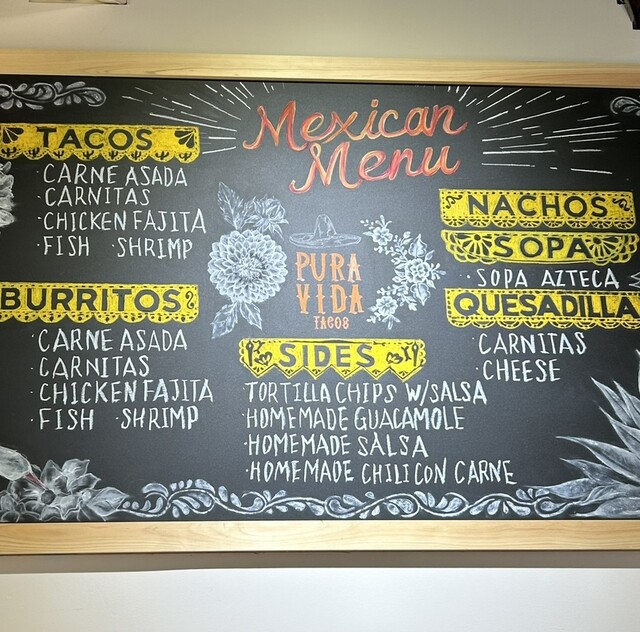 Mexican
Menu
TACOS
· CARNE ASADA
· CARNITAS
· CHICKEN FAJITA
· FISH · SHRIMP
BURRITOS
· CARNE ASADA
· CARNITAS
· CHICKEN FAJITA
· FISH · SHRIMP
PURA
VIDA
TACOS
SIDES
· TORTILLA CHIPS W/SALSA
· HOMEMADE GUACAMOLE
· HOMEMADE SALSA
· HOMEMADE CHILI CON CARNE
NACHOS
SOPA
· SOPA AZTECA
QUESADILLA
· CARNITAS
· CHEESE